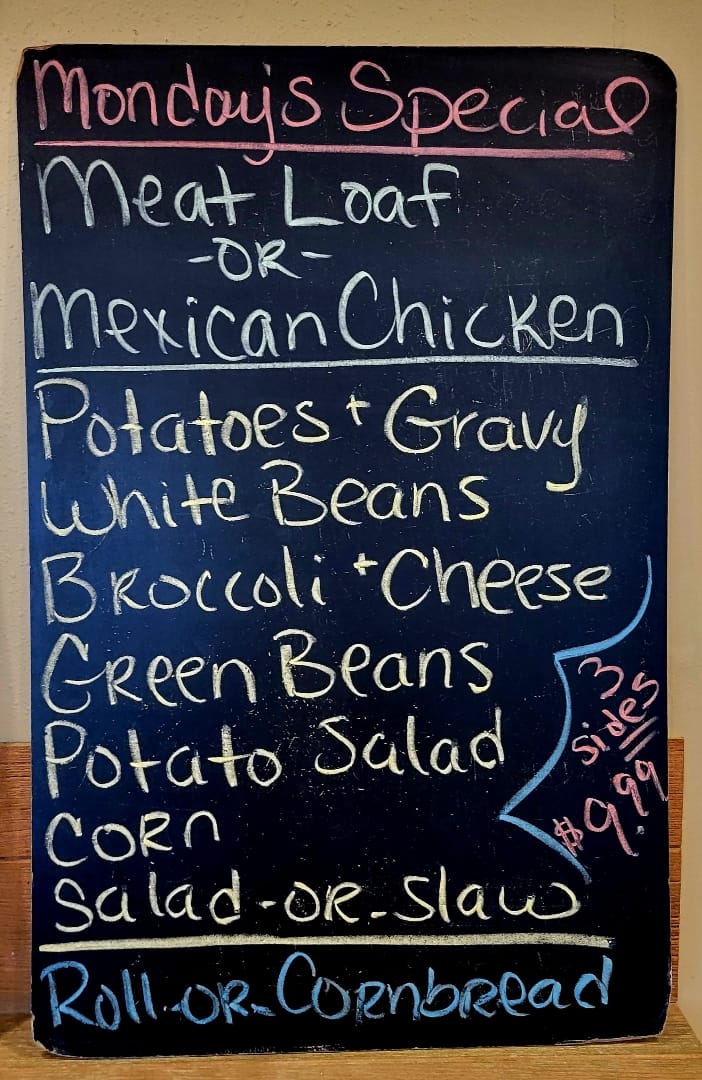 Monday's Special
Meat Loaf
-OR-
Mexican Chicken
Potatoes + Gravy
White Beans
Broccoli + Cheese
Green Beans
Potato Salad
Corn
Salad-OR-Slaw
3
sides
$9.99
Roll-OR-Cornbread